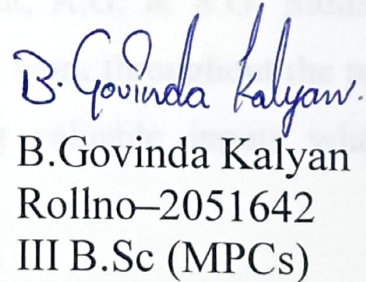 B. Govinda Kalyan.
B.Govinda Kalyan
Rollno–2051642
III B.Sc (MPCs)